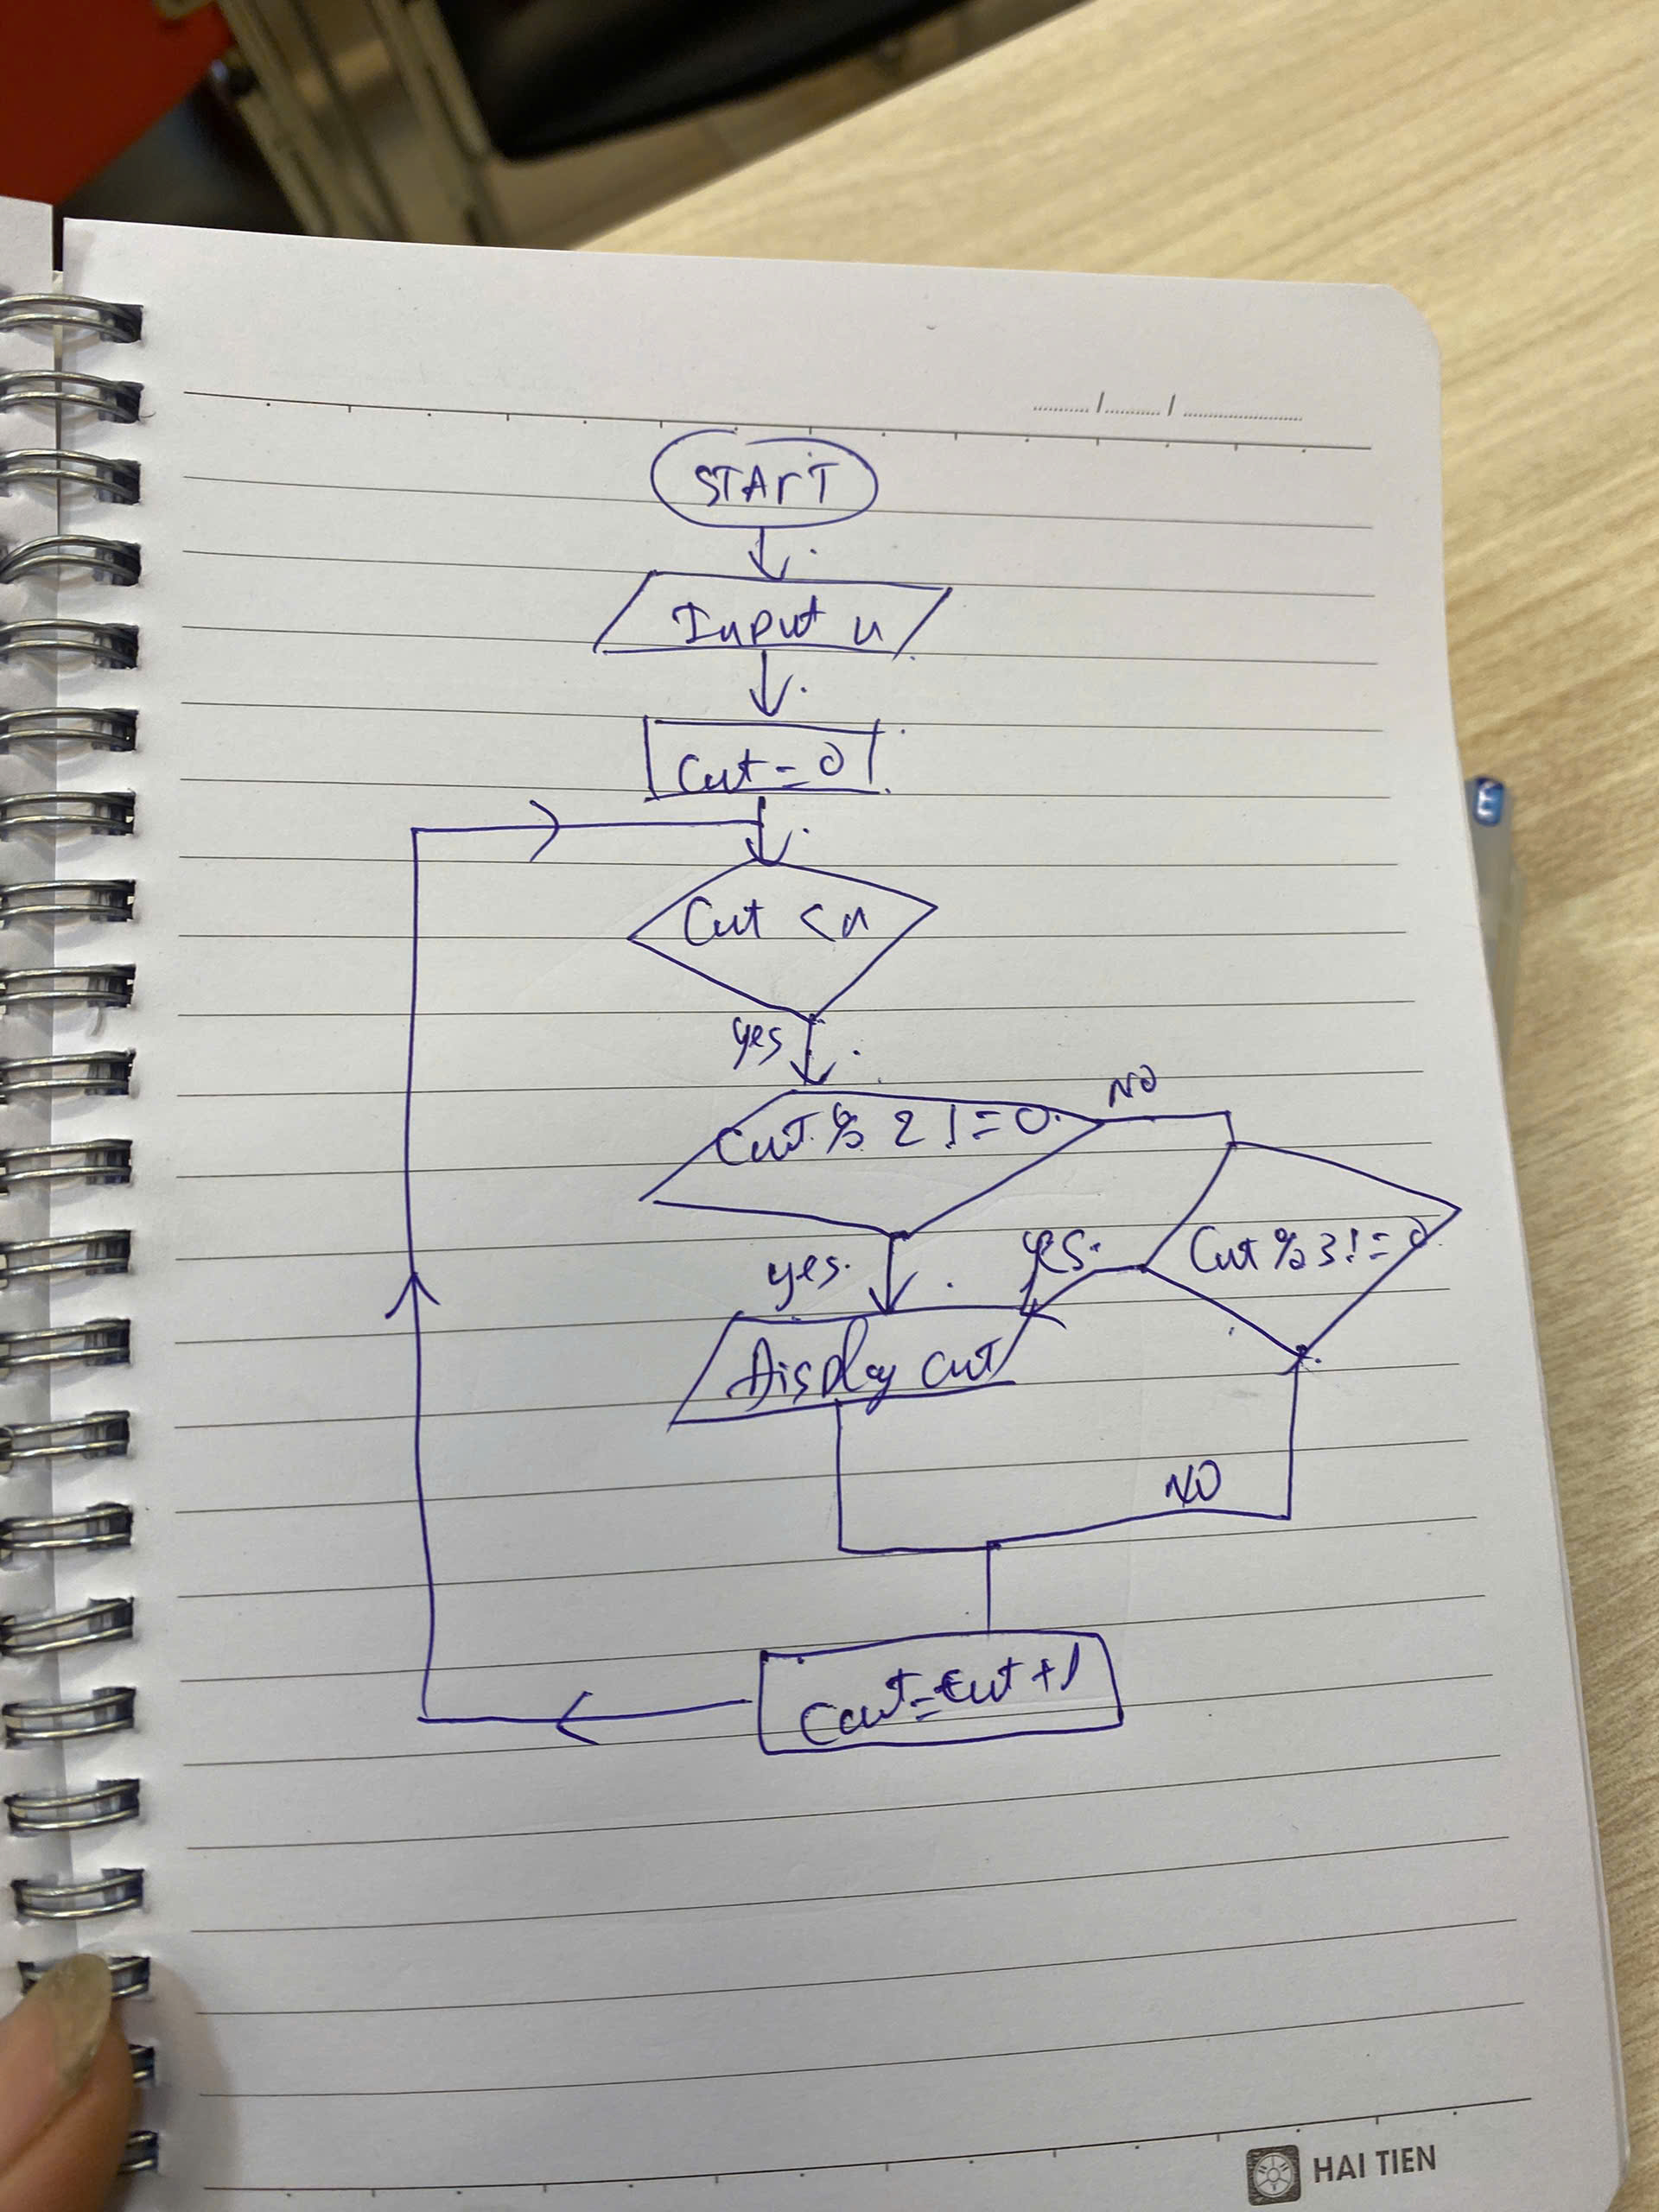 START
Input n
Cnt = 0
Cnt < n
yes
NO
Cnt % 2 != 0
yes.
yes.
Cnt % 3 != 0
Display cnt
NO
Cnt = cnt + 1
HAI TIEN